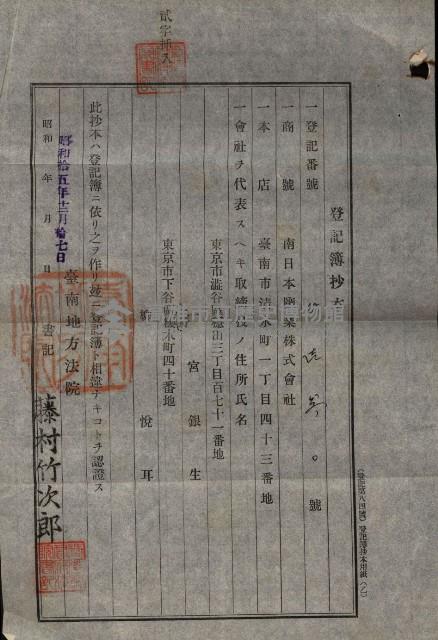 登記簿抄本
一登記番號 第 號
一商號 南日本鹽業株式會社
一本店 臺南市清水町一丁目四十三番地
一會社ヲ代表スヘキ取締役ノ住所氏名
東京市澁谷區穩田三丁目百七十一番地
宮銀生
東京市下谷區 木町四十番地
悅耳
此抄本ハ登記簿ニ依リ之ヲ作リ茲ニ登記簿ト相違ナキコトヲ認證ス
昭和 年 月 日
昭和拾五年十二月拾七日
臺南地方法院
書記 藤村竹次郎
貳字挿入
登記簿抄本用紙
高雄市立歷史博物館